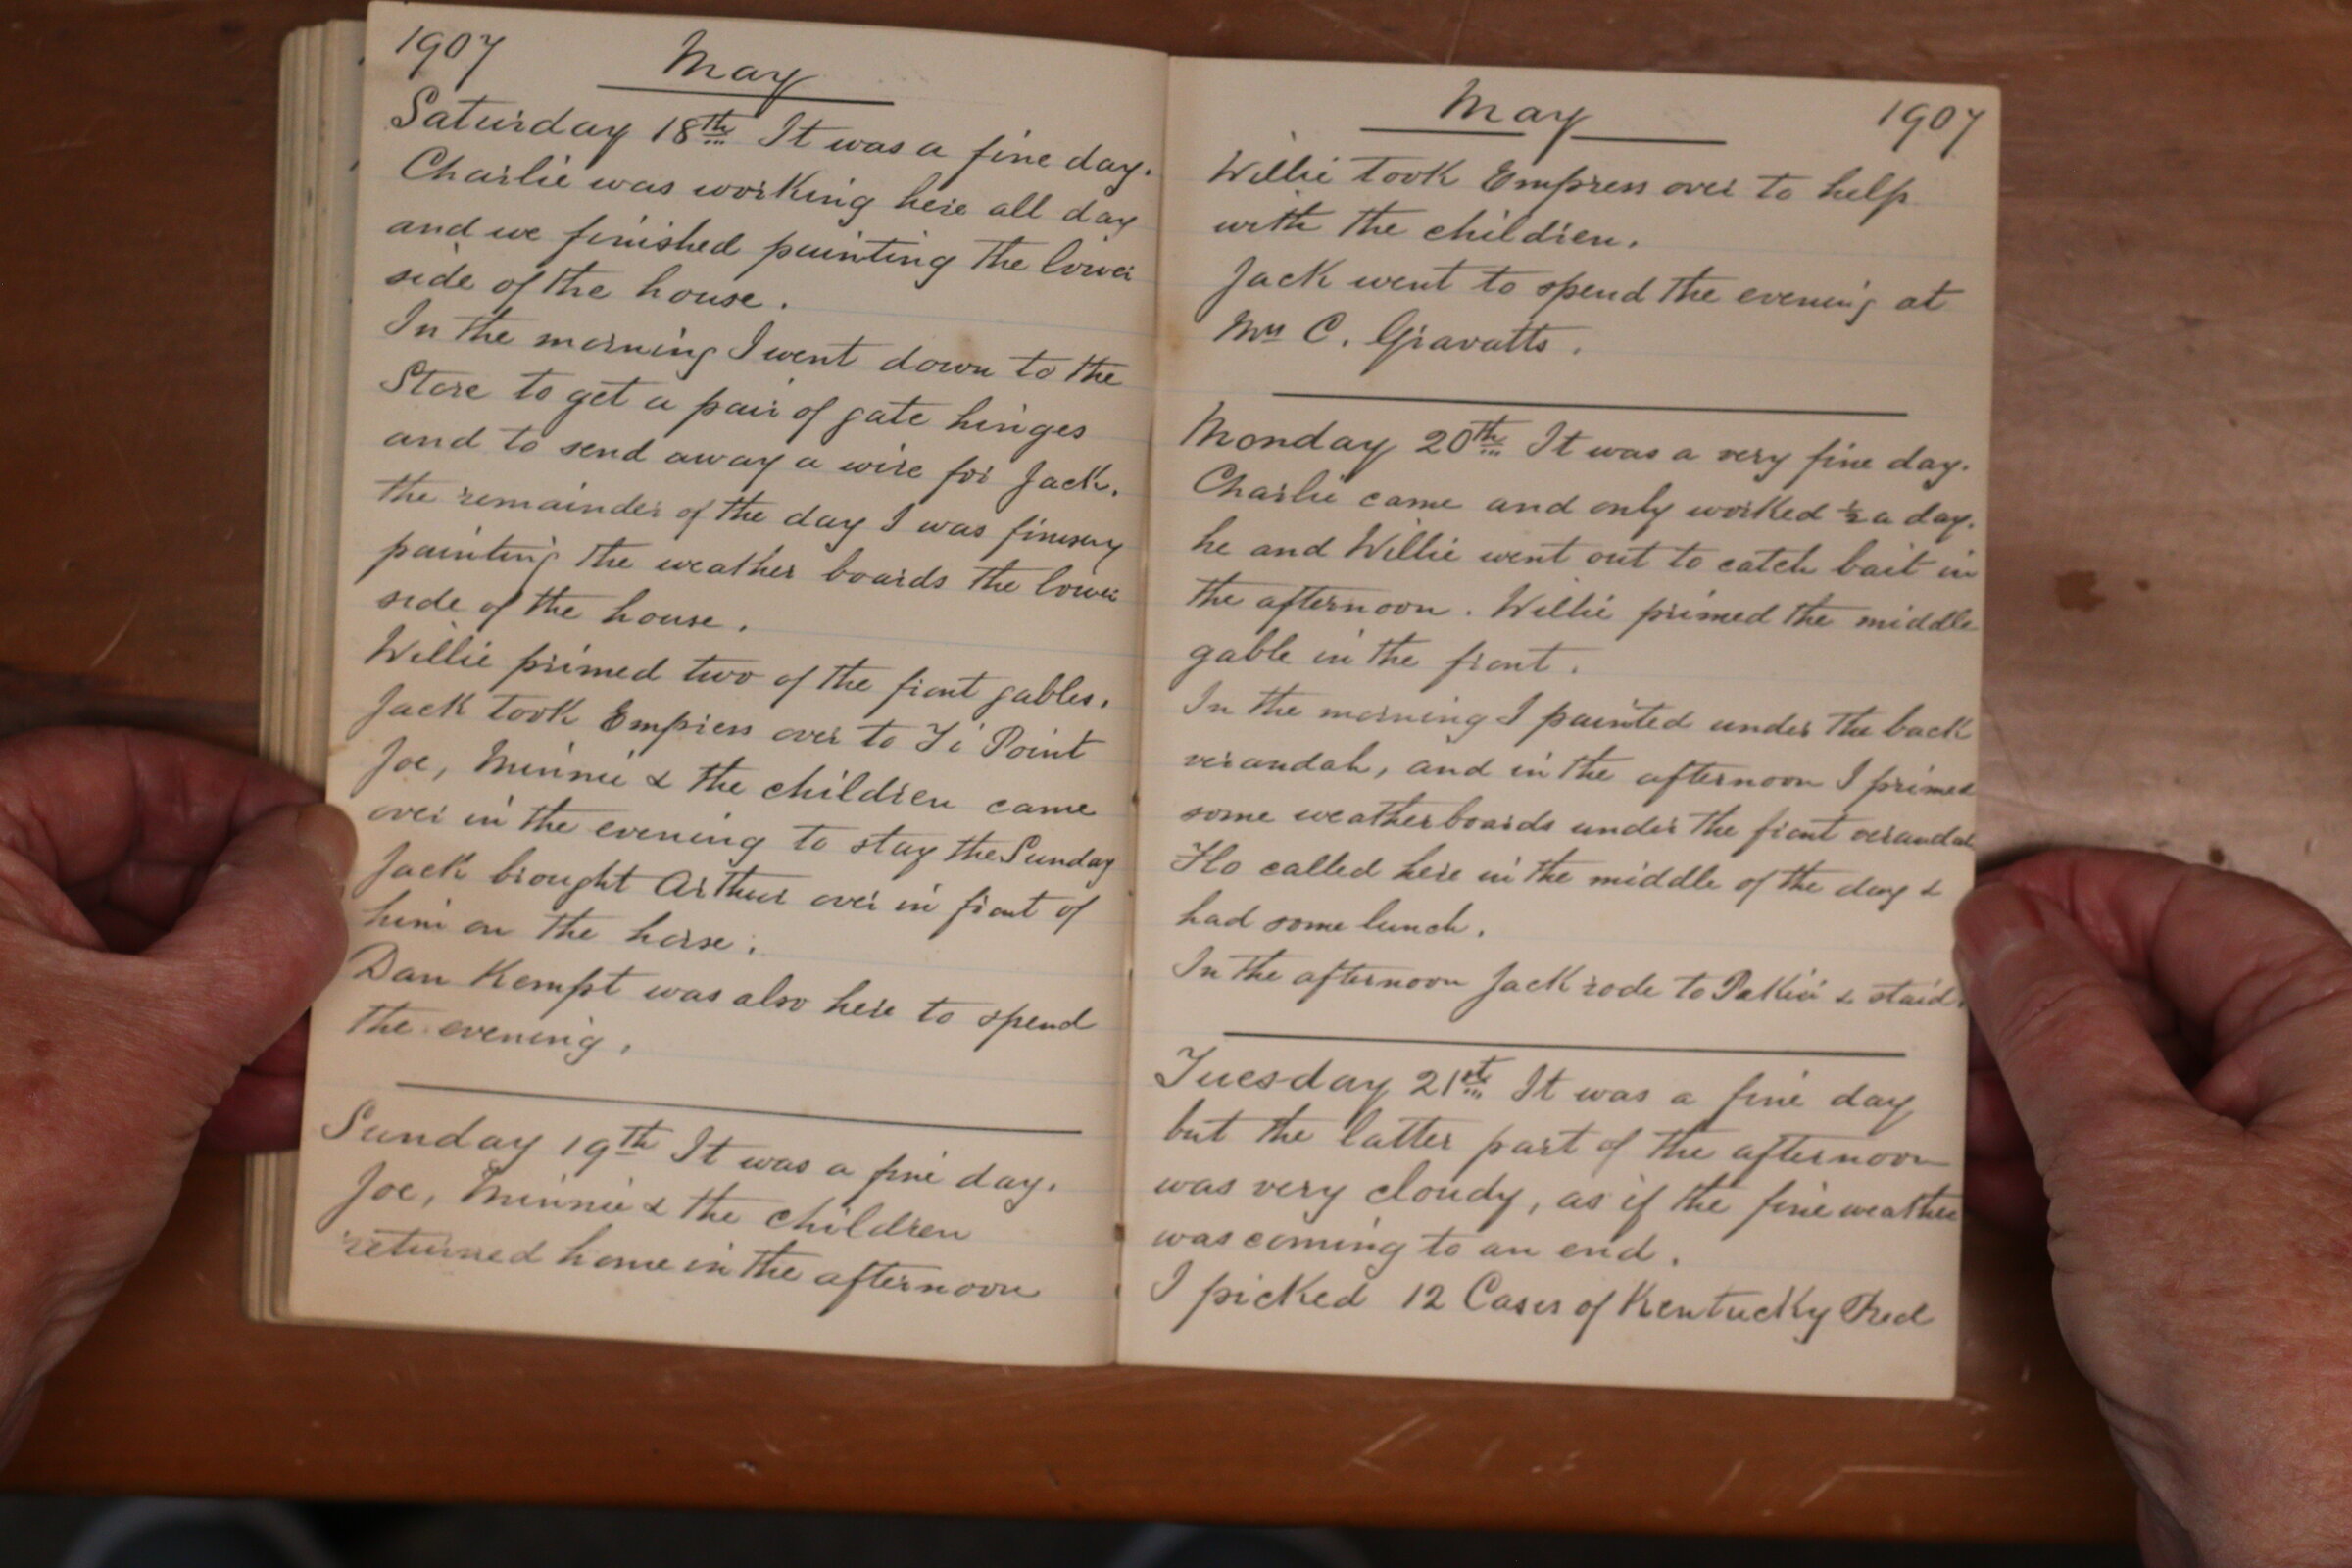 1907
May
Saturday 18th It was a fine day.
Charlie was working here all day
and we finished painting the lower
side of the house.
In the morning I went down to the
Store to get a pair of gate hinges
and to send away a wire for Jack.
the remainder of the day I was
painting the weather boards the lower
side of the house.
Willie primed two of the front gables.
Jack took Empress over to Ti Point
Joe, Minnie & the children came
over in the evening to stay the Sunday
Jack brought Arthur over in front of
him on the horse.
Dan Kempt was also here to spend
the evening.
Sunday 19th It was a fine day.
Joe, Minnie & the children
returned home in the afternoon
May
1907
Willie took Empress over to help
with the children.
Jack went to spend the evening at
Mrs C. Gravatts.
Monday 20th It was a very fine day.
Charlie came and only worked ½ a day.
he and Willie went out to catch bait in
the afternoon. Willie primed the middle
gable in the front.
In the morning I painted under the back
verandah, and in the afternoon I primed
some weatherboards under the front verandah
Flo called here in the middle of the day &
had some lunch.
In the afternoon Jack rode to Pakiri & staid.
Tuesday 21st It was a fine day
but the latter part of the afternoon
was very cloudy, as if the fine weather
was coming to an end.
I picked 12 Cases of Kentucky Red